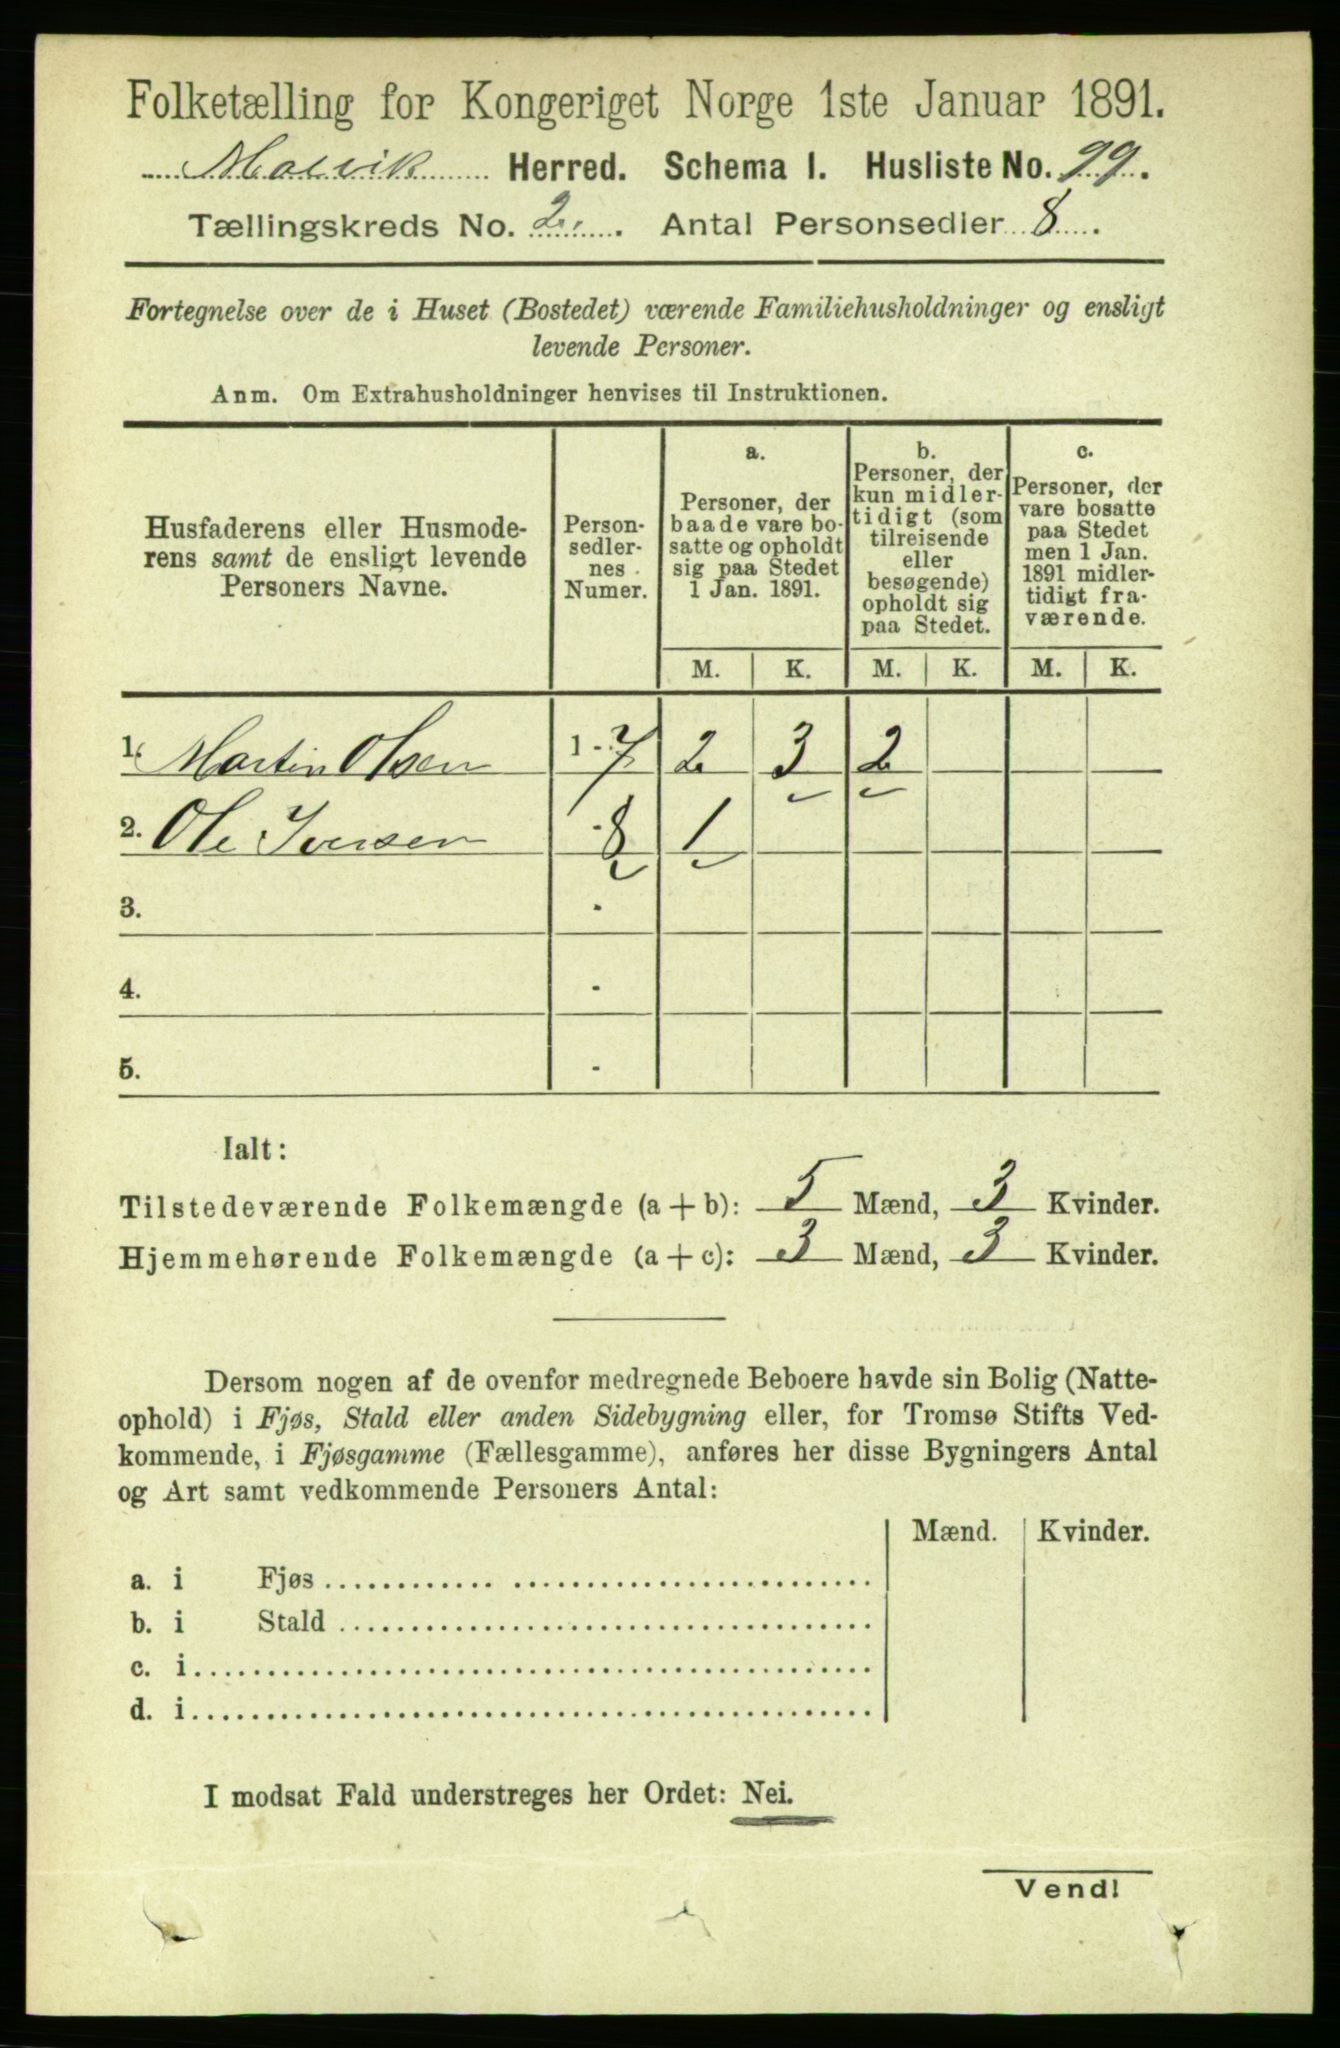 Folketælling for Kongeriget Norge 1ste Januar 1891.
Malvik Herred. Schema I. Husliste No. 99.
Tællingskreds No. 2. Antal Personsedler 8.
Fortegnelse over de i Huset (Bostedet) værende Familiehusholdninger og ensligt
levende Personer.
Anm. Om Extrahusholdninger henvises til Instruktionen.
Husfaderens eller Husmode-
rens samt de ensligt levende
Personers Navne.
Person-
sedler-
nes
Numer.
a.
Personer, der
baade vare bo-
satte og opholdt
sig paa Stedet
1 Jan. 1891.
b.
Personer, der
kun midler-
tidigt (som
tilreisende
eller
besøgende)
opholdt sig
paa Stedet.
c.
Personer, der
vare bosatte
paa Stedet
men 1 Jan.
1891 midler-
tidigt fra-
værende.
M. K. M. K. M. K.
1. Martin Olsen 1-7 2 3 2
2. Ole Iversen 8 1
3. -
4. -
5. -
Ialt:
Tilstedeværende Folkemængde (a + b): 5 Mænd, 3 Kvinder.
Hjemmehørende Folkemængde (a + c): 3 Mænd, 3 Kvinder.
Dersom nogen af de ovenfor medregnede Beboere havde sin Bolig (Natte-
ophold) i Fjøs, Stald eller anden Sidebygning eller, for Tromsø Stifts Ved-
kommende, i Fjøsgamme (Fællesgamme), anføres her disse Bygningers Antal
og Art samt vedkommende Personers Antal:
Mænd. Kvinder.
a. i Fjøs
b. i Stald
c. i
d. i
I modsat Fald understreges her Ordet: Nei.
Vend!